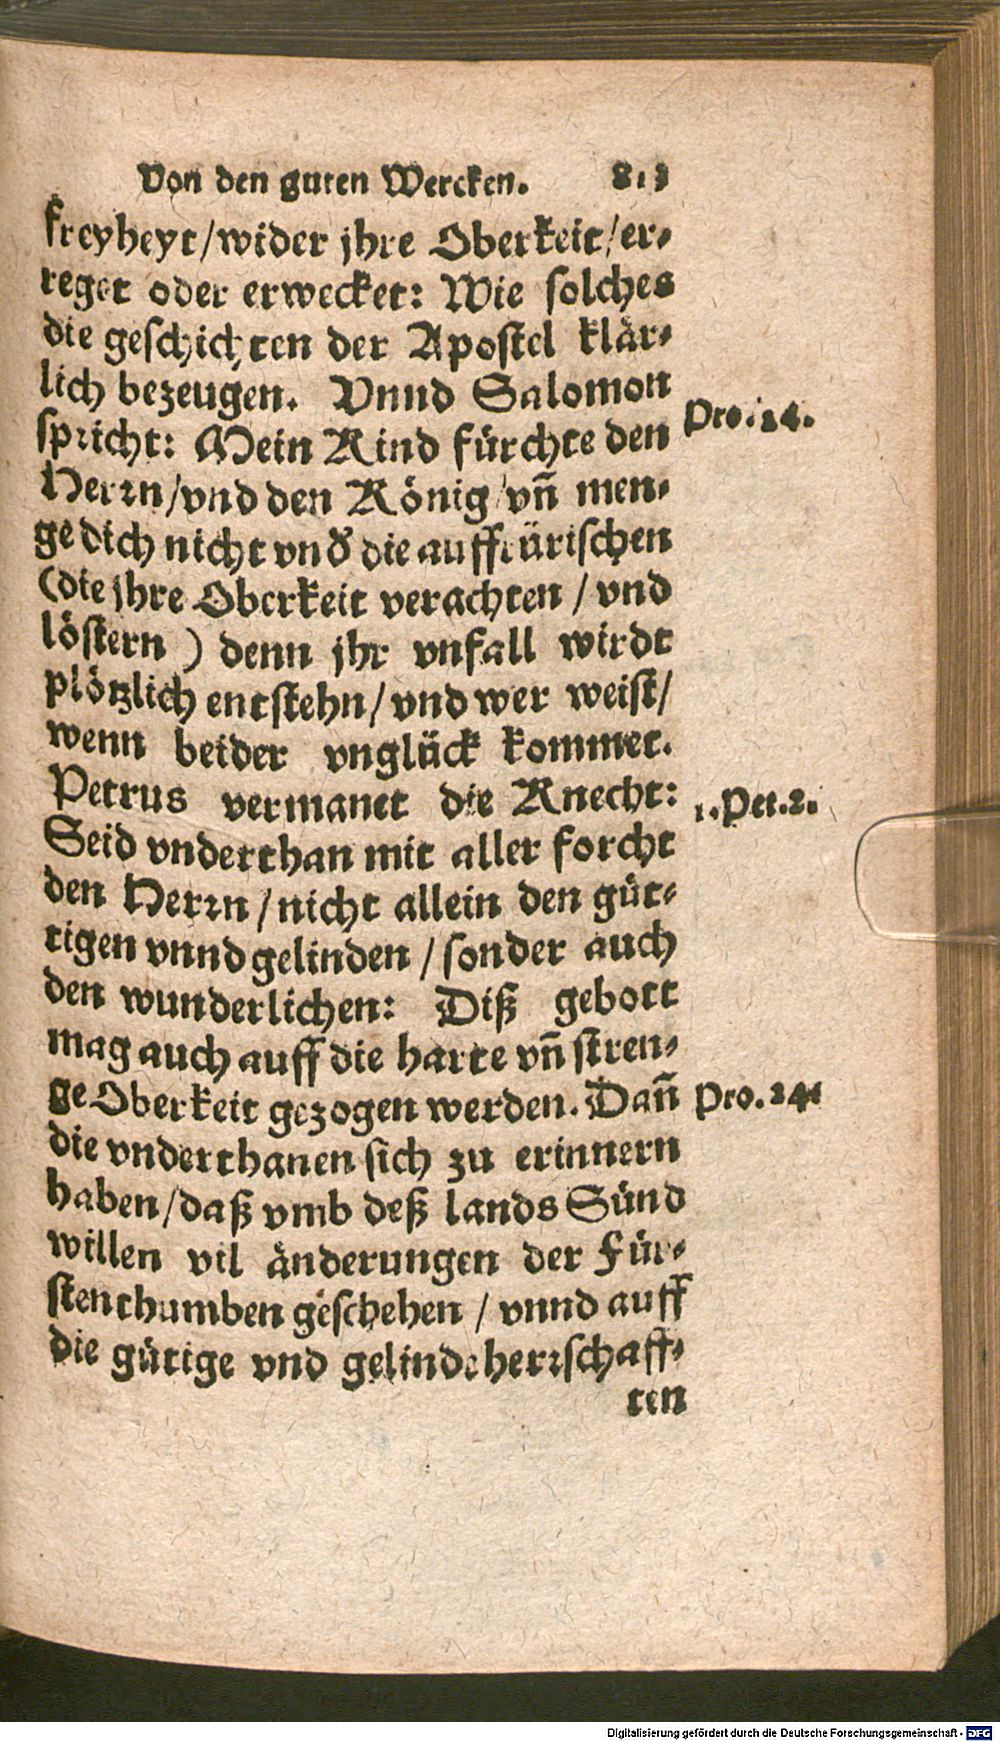 Von den guten Wercken. 813
freyheyt/wider jhre Oberkeit/er⸗
reget oder erwecket: Wie solches
die geschichten der Apostel klär⸗
lich bezeugen. Vnnd Salomon
spricht: Mein Kind fürchte den
Pro. 24.
Herrn/vnd den König/vñ men⸗
ge dich nicht vnd̕ die auffrürischen
(die jhre Oberkeit verachten / vnd
löstern ) denn jhr vnfall wirdt
plötzlich entstehn/vnd wer weist/
wenn beider vnglück kommet.
Petrus vermanet die Knecht:
1. Pet. 2.
Seid vnderthan mit aller forcht
den Herrn/nicht allein den güt⸗
tigen vnnd gelinden / sonder auch
den wunderlichen: Diß gebott
mag auch auff die harte vñ stren⸗
ge Oberkeit gezogen werden. Dañ
Pro. 24.
die vnderthanen sich zu erinnern
haben/daß vmb deß lands Sünd
willen vil änderungen der Für⸗
stenthumben geschehen / vnnd auff
die gütige vnd gelinde herrschaff⸗
ten
Digitalisierung gefördert durch die Deutsche Forschungsgemeinschaft - DFG